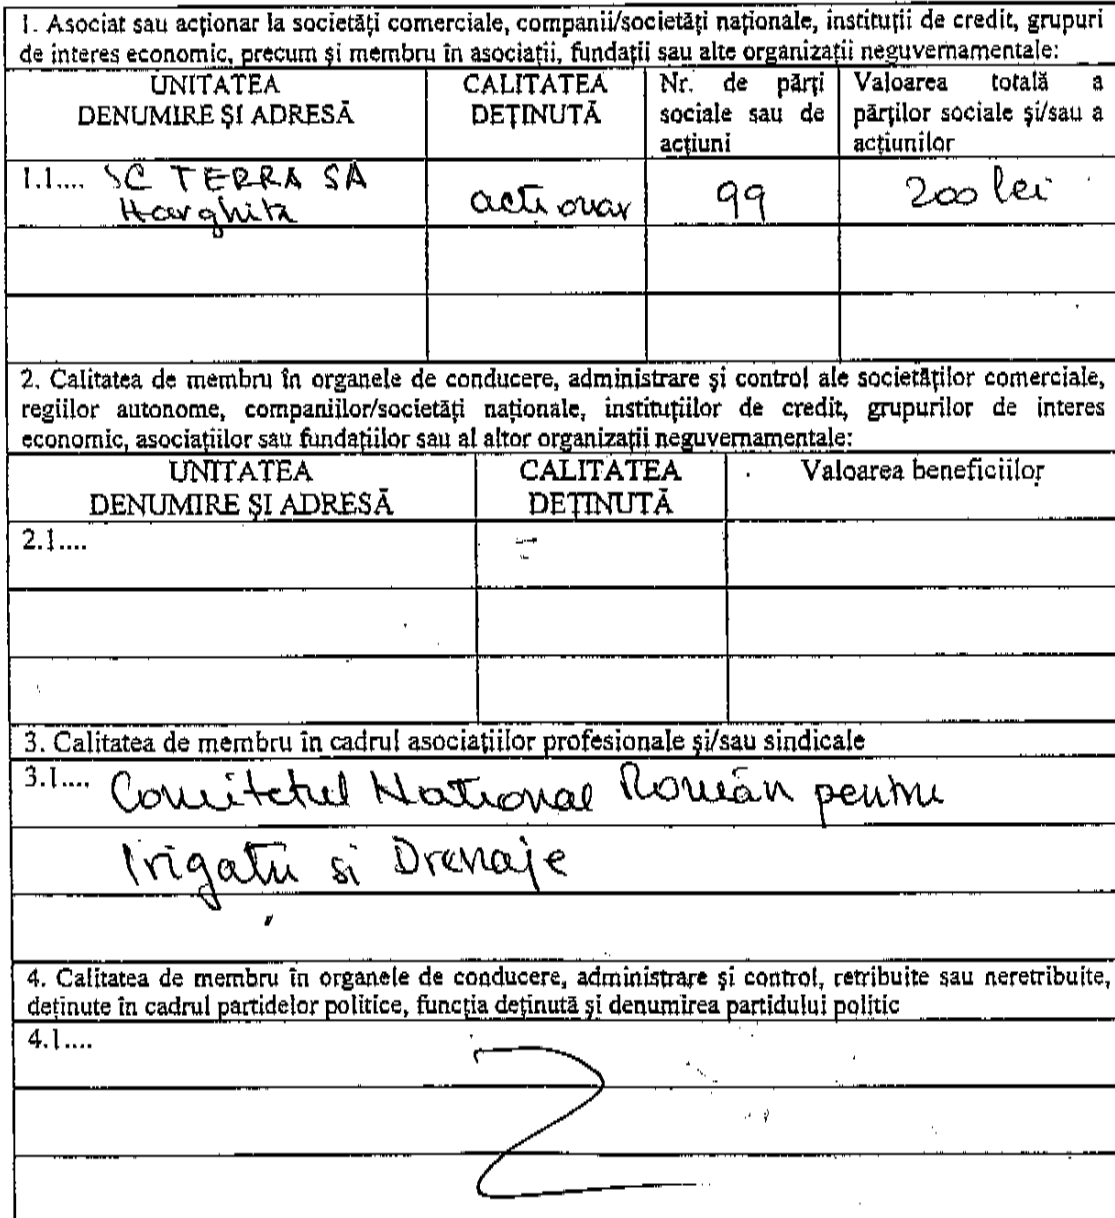 1. Asociat sau acționar la societăți comerciale, companii/societăți naționale, instituții de credit, grupuri
de interes economic, precum și membru în asociații, fundații sau alte organizații neguvernamentale:
UNITATEA
DENUMIRE ȘI ADRESĂ
CALITATEA
DEȚINUTĂ
Nr. de părți
sociale sau de
acțiuni
Valoarea totală a
părților sociale și/sau a
acțiunilor
1.1.... SC TERRA SA
Harghita
actionar
99
200 lei
2. Calitatea de membru în organele de conducere, administrare și control ale societăților comerciale,
regiilor autonome, companiilor/societăți naționale, instituțiilor de credit, grupurilor de interes
economic, asociațiilor sau fundațiilor sau al altor organizații neguvernamentale:
UNITATEA
DENUMIRE ȘI ADRESĂ
CALITATEA
DEȚINUTĂ
Valoarea beneficiilor
2.1....
3. Calitatea de membru în cadrul asociațiilor profesionale și/sau sindicale
3.1.... Comitetul National Român pentru
Irigatii și Drenaje
4. Calitatea de membru în organele de conducere, administrare și control, retribuite sau neretribuite,
deținute în cadrul partidelor politice, funcția deținută și denumirea partidului politic
4.1....